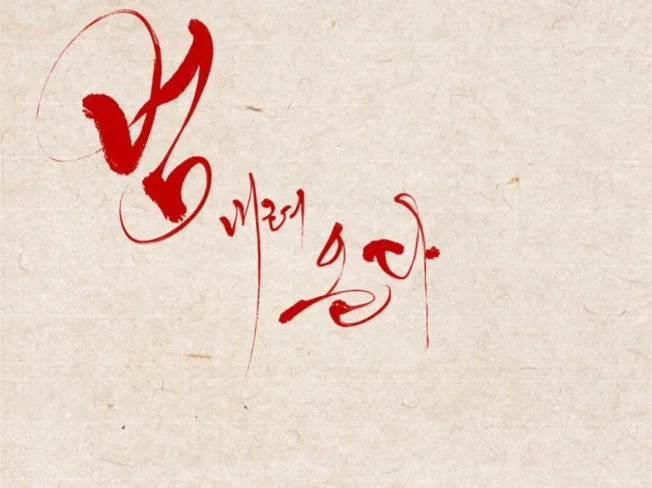 범
내려
온다